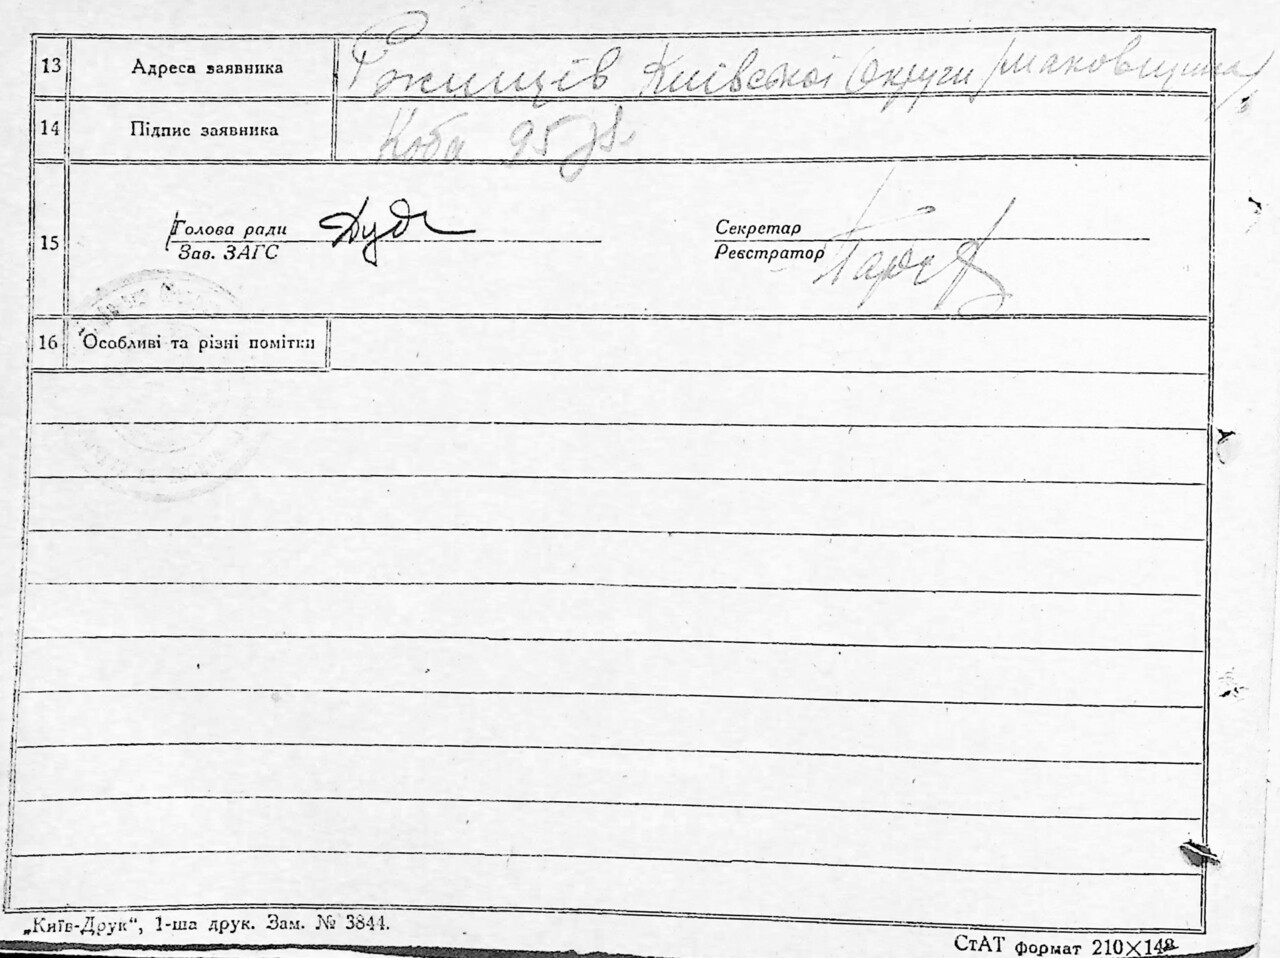 13 Адреса заявника Гжищів Київської Округи /Маковищина/
14 Підпис заявника Коба
15 Голова ради Дуд Секретар
Зав. ЗАГС Реєстратор
16 Особливі та різні помітки
„Київ-Друк“, 1-ша друк. Зам. № 3844.
СтАТ формат 210×148